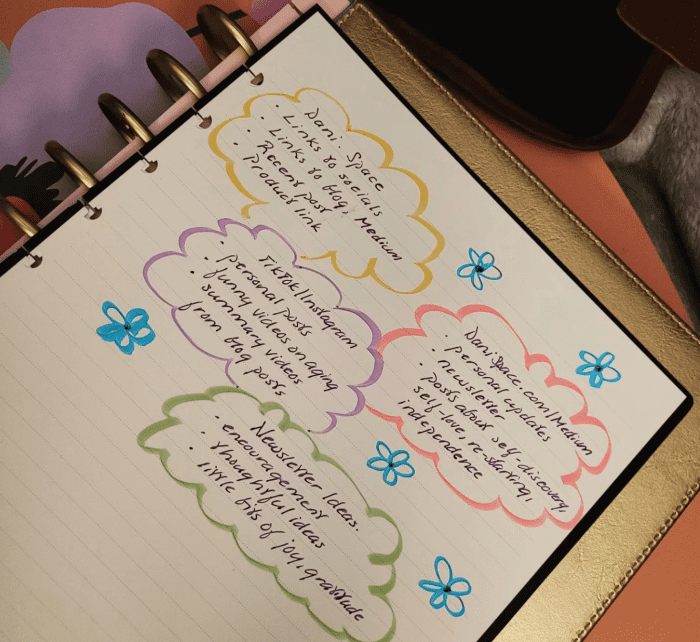 Dani. Space
• Links to socials
• Links to blog, Medium
• Recent post
• product link
TikTok/Instagram
• personal posts
• funny videos on aging
• summary videos
from blog posts
DaniSpace.com/Medium
• personal updates
• newsletter
• posts about self-discovery,
self-love, re-starting,
independence
Newsletter Ideas.
• encouragement
• thoughtful ideas
• little bits of joy, gratitude